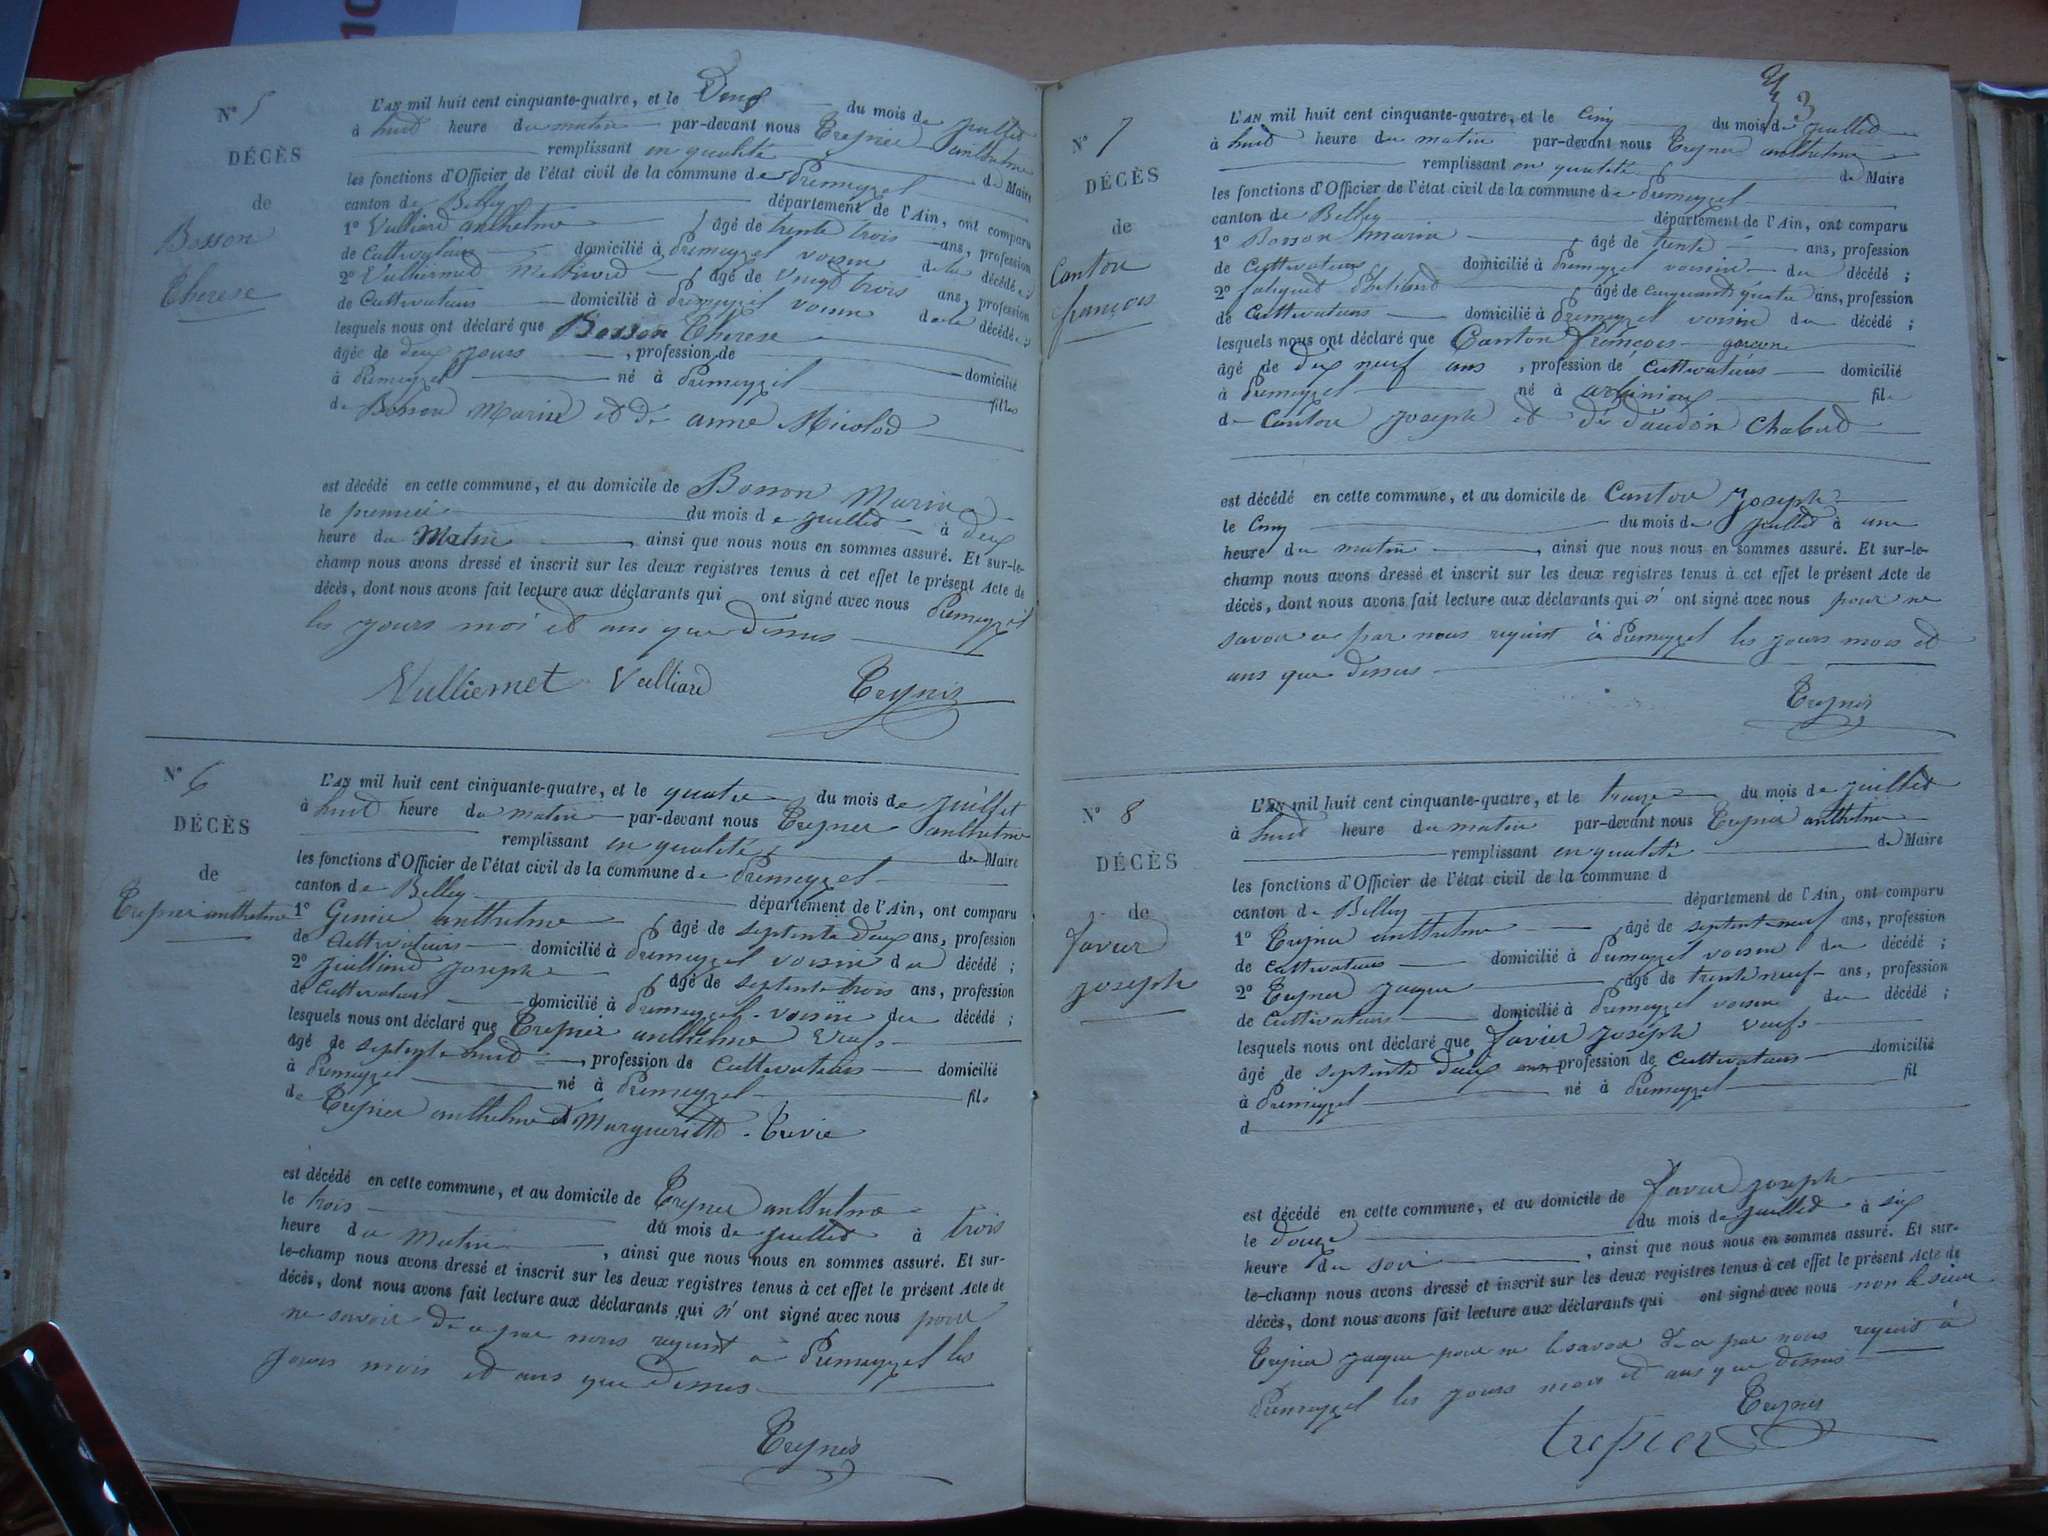 10
N° 5
DÉCÈS
de
Bosson
Therese
L'AN mil huit cent cinquante-quatre, et le Deux du mois de juilled
à huid heure du matin par-devant nous Trepier anthelme
remplissant en qualité de Maire
les fonctions d'Officier de l'état civil de la commune de Premeyzel
canton de Belley département de l'Ain, ont comparu
1° Vulliard anthelme âgé de trente trois ans, profession
de Cultivateur domicilié à Premeyzel voisin de la décédée
2° Vulliermed âgé de vingd trois ans, profession
de Cultivateurs domicilié à Premeyzel voisin de la décédée
lesquels nous ont déclaré que Bosson Therese
âgée de deux jours , profession de domicilié
à Premeyzel né à Premeyzel filles
de Bosson Marin et de anne Micolod
est décédé en cette commune, et au domicile de Bosson Marin
le premier du mois de juilled à deux
heure du Matin , ainsi que nous nous en sommes assuré. Et sur-le-
champ nous avons dressé et inscrit sur les deux registres tenus à cet effet le présent Acte de
décès, dont nous avons fait lecture aux déclarants qui ont signé avec nous Premeyzel
les jours moi et ans que dessus
Vulliemet Vulliard Trepier
N° 6
DÉCÈS
de
Trepier anthelme
L'AN mil huit cent cinquante-quatre, et le quatre du mois de juillet
à huid heure du matin par-devant nous Trepier anthelme
remplissant en qualité de Maire
les fonctions d'Officier de l'état civil de la commune de Premeyzel
canton de Belley département de l'Ain, ont comparu
1° anthelme âgé de septente deux ans, profession
de Cultivateurs domicilié à Premeyzel voisin du décédé ;
2° joseph âgé de septente trois ans, profession
de Cultivateurs domicilié à Premeyzel voisin du décédé ;
lesquels nous ont déclaré que Trepier anthelme Veufs
âgé de septente huid , profession de Cultivateurs domicilié
à Premeyzel né à Premeyzel fils
de Trepier anthelme et Margueritte Trevie
est décédé en cette commune, et au domicile de Trepier anthelme
le trois du mois de juilled à trois
heure du Matin , ainsi que nous nous en sommes assuré. Et sur-
le-champ nous avons dressé et inscrit sur les deux registres tenus à cet effet le présent Acte de
décès, dont nous avons fait lecture aux déclarants qui n' ont signé avec nous pour
ne savoir de ce par nous requist à Premeyzel les
jours mois et ans que dessus
Trepier
3
N° 7
DÉCÈS
de
Canton
françois
L'AN mil huit cent cinquante-quatre, et le Cinq du mois de juilled
à huid heure du matin par-devant nous Trepier anthelme
remplissant en qualité de Maire
les fonctions d'Officier de l'état civil de la commune de Premeyzel
canton de Belley département de l'Ain, ont comparu
1° Bosson Marin âgé de trente ans, profession
de Cultivateurs domicilié à Premeyzel voisin du décédé ;
2° âgé de cinquante quatre ans, profession
de Cultivateurs domicilié à Premeyzel voisin du décédé ;
lesquels nous ont déclaré que Canton françois garcon
âgé de dix neuf ans , profession de Cultivateurs domicilié
à Premeyzel né à fils
de Canton joseph et de Chabert
est décédé en cette commune, et au domicile de Canton joseph
le Cinq du mois de juilled à une
heure du matin , ainsi que nous nous en sommes assuré. Et sur-le-
champ nous avons dressé et inscrit sur les deux registres tenus à cet effet le présent Acte de
décès, dont nous avons fait lecture aux déclarants qui n' ont signé avec nous pour ne
savoir ce par nous requist à Premeyzel les jours mois et
ans que dessus
Trepier
N° 8
DÉCÈS
de
Favier
joseph
L'AN mil huit cent cinquante-quatre, et le traize du mois de juilled
à huid heure du matin par-devant nous Trepier anthelme
remplissant en qualité de Maire
les fonctions d'Officier de l'état civil de la commune d
canton de Belley département de l'Ain, ont comparu
1° Trepier anthelme âgé de septent neuf ans, profession
de Cultivateurs domicilié à Premeyzel voisin du décédé ;
2° Trepier jacque âgé de trente neuf ans, profession
de Cultivateurs domicilié à Premeyzel voisin du décédé ;
lesquels nous ont déclaré que favier joseph veufs
âgé de septente deux ans profession de Cultivateurs domicilié
à Premeyzel né à Premeyzel fil
d
est décédé en cette commune, et au domicile de favier joseph
le douze du mois de juilled à six
heure du soir , ainsi que nous nous en sommes assuré. Et sur-
le-champ nous avons dressé et inscrit sur les deux registres tenus à cet effet le présent Acte de
décès, dont nous avons fait lecture aux déclarants qui ont signé avec nous non le sieur
Trepier jacque pour ne le savoir de ce par nous requist à
Premeyzel les jours mois et ans que dessus
Trepier
trepier